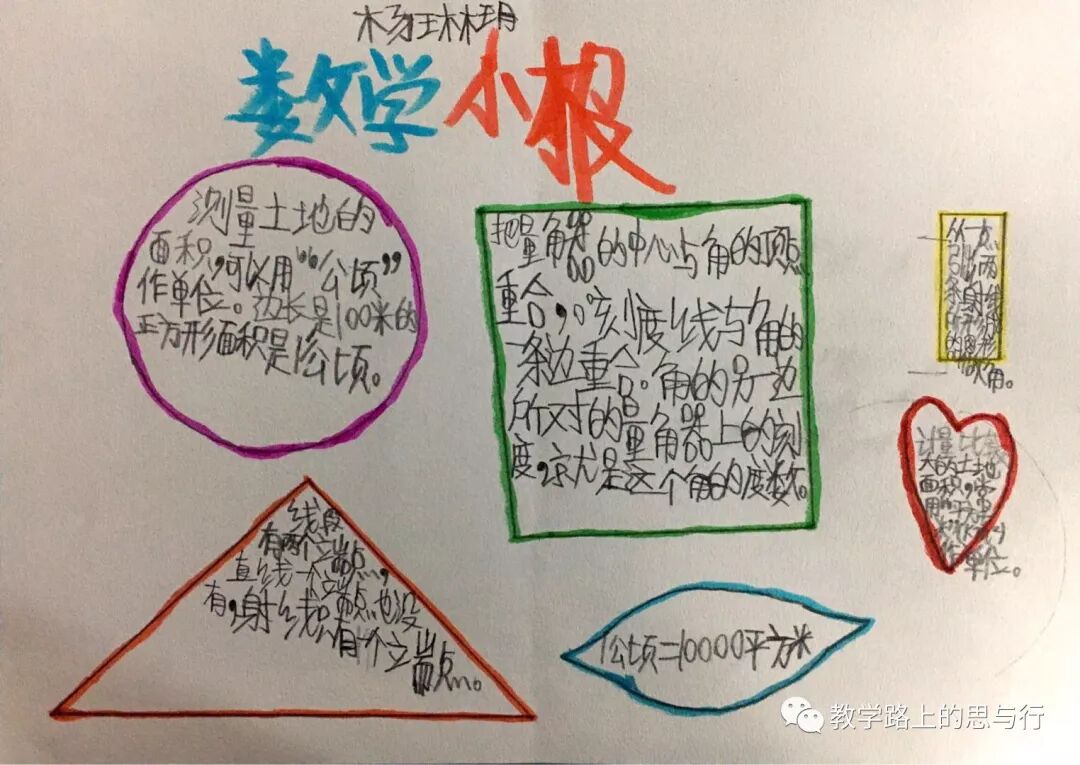 杨珏林玥
数学小报
测量土地的
面积，可以用“公顷”
作单位。边长是100米的
正方形面积是1公顷。
把量角器的中心与角的顶点
重合，0°刻度线与角的
一条边重合。角的另一边
所对的量角器上的刻
度，就是这个角的度数。
从一点
引出两
条射线
所形成
的图形
叫做角。
计量比较
大的土地
面积，常
用
作
单位。
线段
有两个端点，
直线一个端点也没
有，射线只有一个
端点。
1公顷=10000平方米
教学路上的思与行